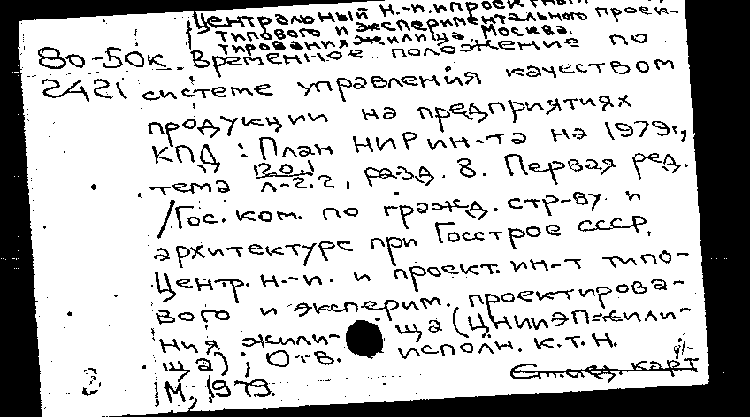 Центральный н.-и. и проектный
типового и экспериментального проек-
тирования жилища. Москва.
80-50к. Временное положение по
2421 системе управления качеством
продукции на предприятиях
КПД : План НИР ин-та на 1979г.,
тема 1.20.1 Л-2.2, разд. 8. Первая ред.
/Гос. ком. по гражд. стр-ву и
архитектуре при Госстрое СССР,
Центр. н.-и. и проект. ин-т типо-
вого и эксперим. проектирова-
ния жили- ща (ЦНИИЭП жили-
ща) ; Отв. исполн. к.т.н.
М, 1979
карт